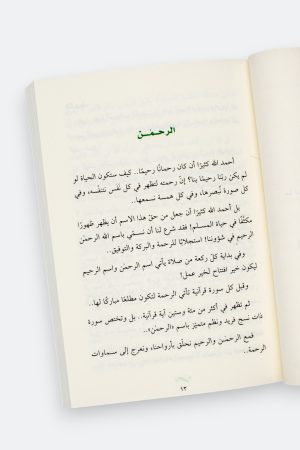 الرحمٰن
أحمد الله كثيرًا أن كان رحمانًا رحيمًا.. كيف ستكون الحياة لو
لم يكن ربّنا رحيمًا بنا؟ إنّ رحمته لتظهر في كل نَفَس نتنفّسه، وفي
كل صورة نُبصرها، وفي كل همسة نسمعها..
بل أحمد الله كثيرًا أن جعل من حقّ هذا الاسم أن يظهر ظهورًا
مكثّفًا في حياة المسلم! فقد شرع لنا أن نسمّي باسم الله الرحمٰن
الرحيم في شؤوننا! استجلابًا للرحمة والبركة والتوفيق..
وفي بداية كلّ ركعة من صلاة يأتي اسم الرحمٰن واسم الرحيم
ليكون خير افتتاح لخير عمل!
وقبل كل سورة قرآنية تأتي الرحمة لتكون مطلعًا مباركًا لها..
ثم تظهر في أكثر من مئة وستين آية قرآنية.. بل وتختص سورة
ذات نسج فريد ونظم متميّز باسم «الرحمٰن»..
فمع الرحمٰن والرحيم نحلّق بأرواحنا، ونعرج إلى سماوات
الرحمة..
١٣